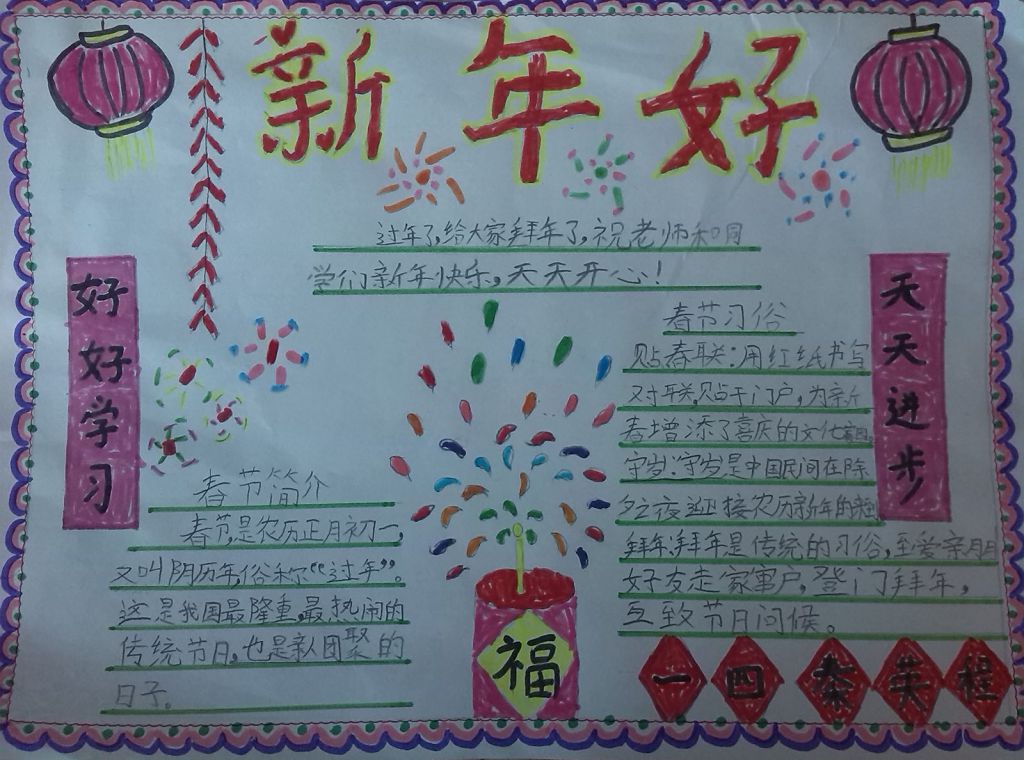 新年好
过年了,给大家拜年了,祝老师和同
学们新年快乐,天天开心!
好好学习
天天进步
春节简介
春节,是农历正月初一,
又叫阴历年,俗称“过年”。
这是我国最隆重,最热闹的
传统节日,也是亲人团聚的
日子。
春节习俗
贴春联:用红纸书写
对联,贴于门户,为新
春增添了喜庆的文化
守岁:守岁是中国民间在除
夕之夜迎接农历新年的
拜年:拜年是传统的习俗,至爱亲朋
好友走家串户,登门拜年,
互致节日问候。
福
一四秦英程